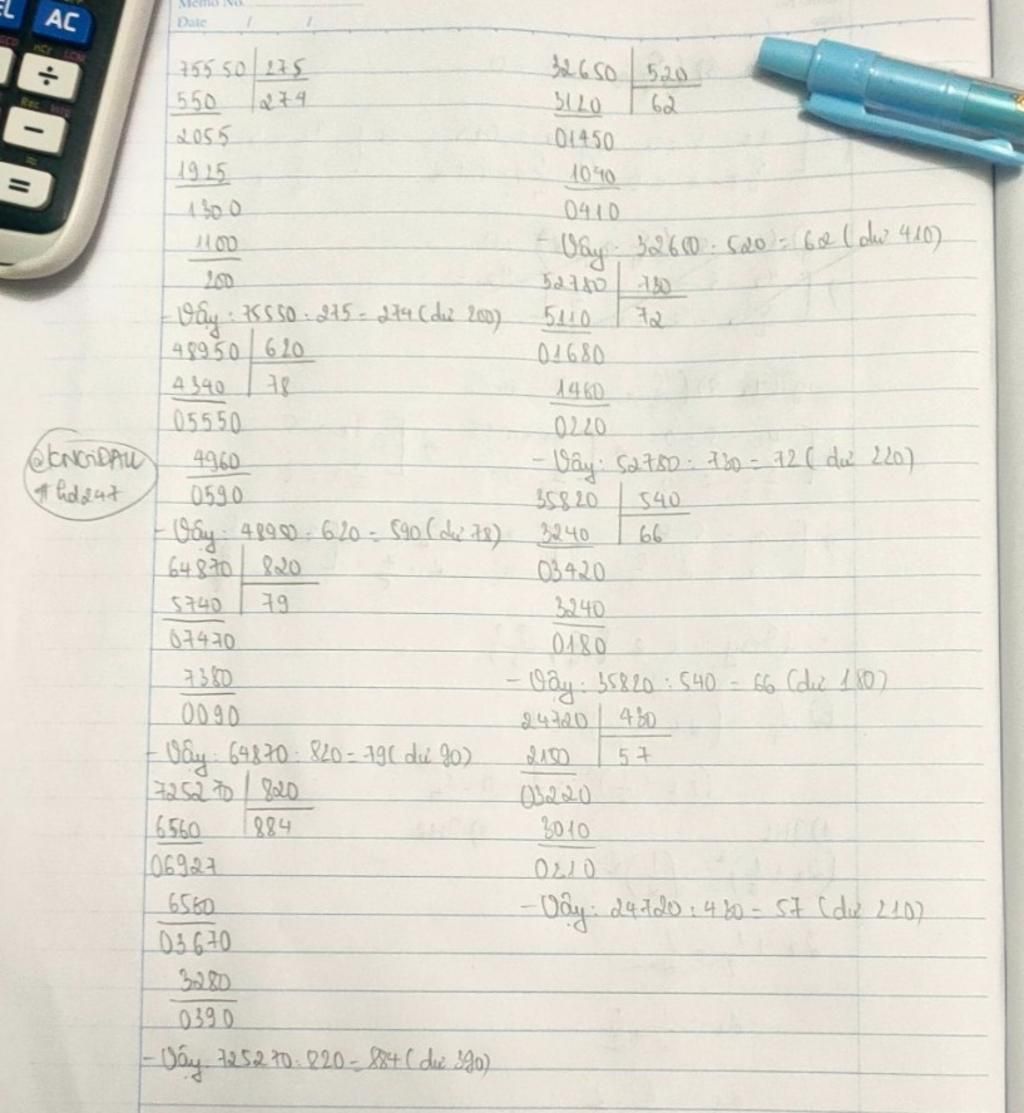 AC
÷
−
=
Memo No.
Date / /
75550 275
550 274
2055
1925
1300
1100
200
- Vậy : 75550 : 275 = 274 (dư 200)
48950 620
4340 78
05550
4960
0590
- Vậy : 48950 : 620 = 590 (dư 78)
64870 820
5740 79
07470
7380
0090
- Vậy : 64870 : 820 = 79 (dư 90)
725270 820
6560 884
06927
6560
03670
3280
0390
- Vậy : 725270 : 820 = 884 (dư 390)
32650 520
3120 62
01450
1040
0410
- Vậy : 32650 : 520 = 62 (dư 410)
52780 730
5110 72
01680
1460
0220
- Vậy : 52780 : 730 = 72 (dư 220)
35820 540
3240 66
03420
3240
0180
- Vậy : 35820 : 540 = 66 (dư 180)
24720 430
2150 57
03220
3010
0210
- Vậy : 24720 : 430 = 57 (dư 210)
hd247